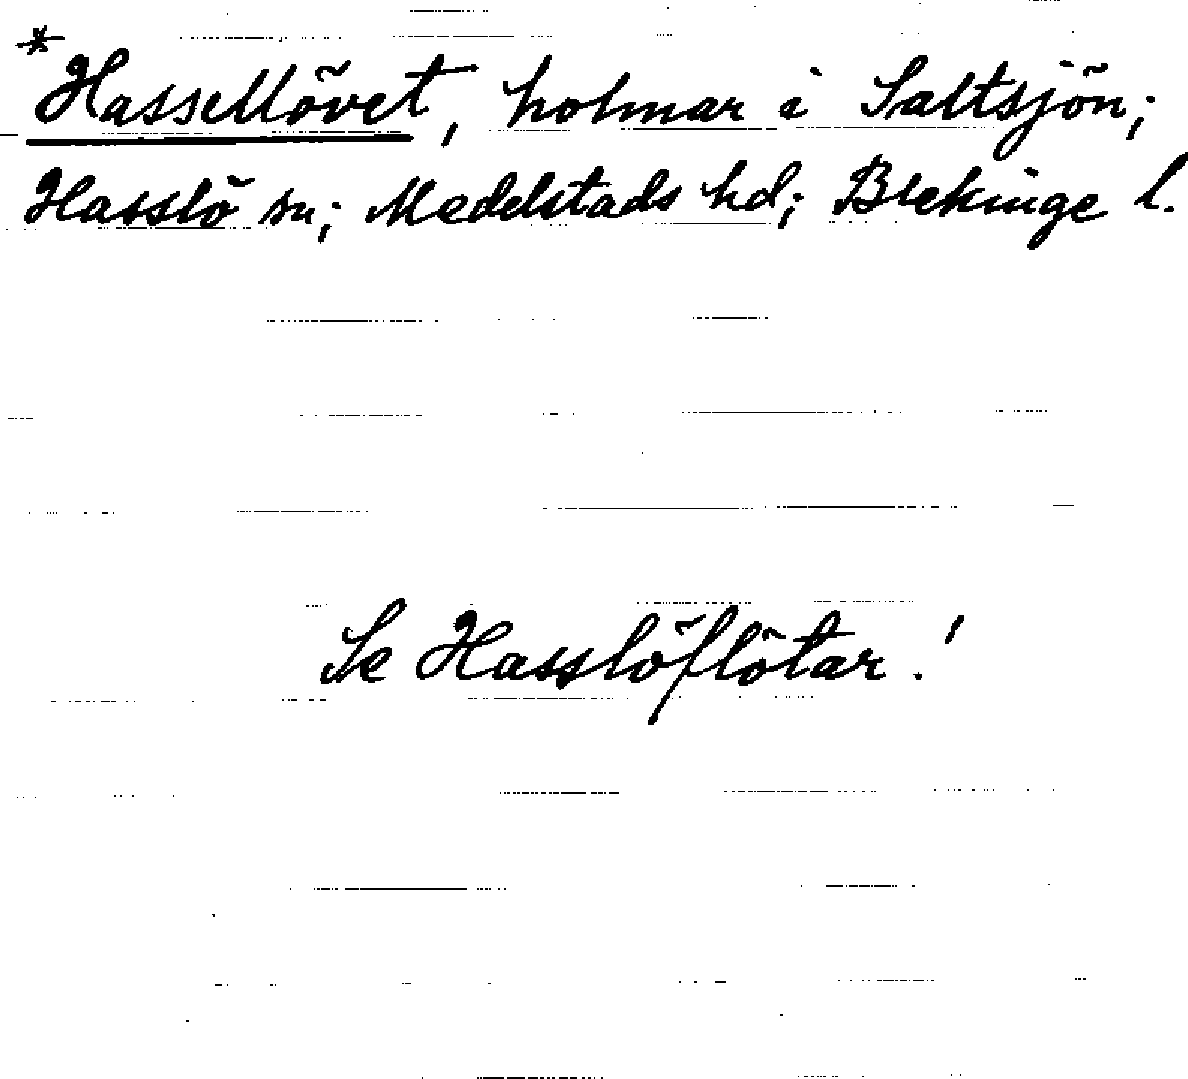 *Hassellövet, holmar i Saltsjön;
Hasslö sn; Medelstads hd; Blekinge l.
Se Hasslöflötar!